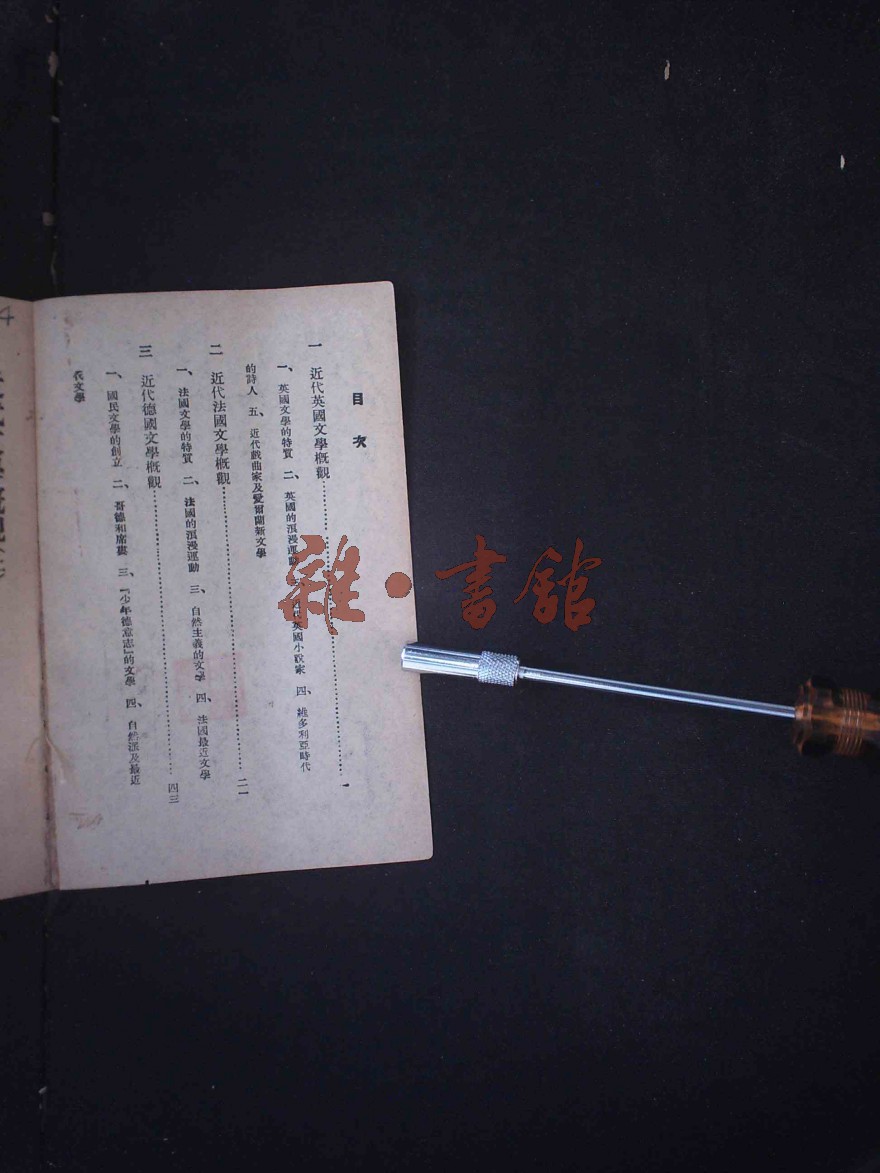 目次
一 近代英國文學概觀……一
一、英國文學的特質 二、英國的浪漫運動 三、近代英國小說家 四、維多利亞時代
的詩人 五、近代戲曲家及愛爾蘭新文學
二 近代法國文學概觀……二一
一、法國文學的特質 二、法國的浪漫運動 三、自然主義的文學 四、法國最近文學
三 近代德國文學概觀……四三
一、國民文學的創立 二、哥德和席勒 三、『少年德意志』的文學 四、自然派及最近
文學
雜·書館
4